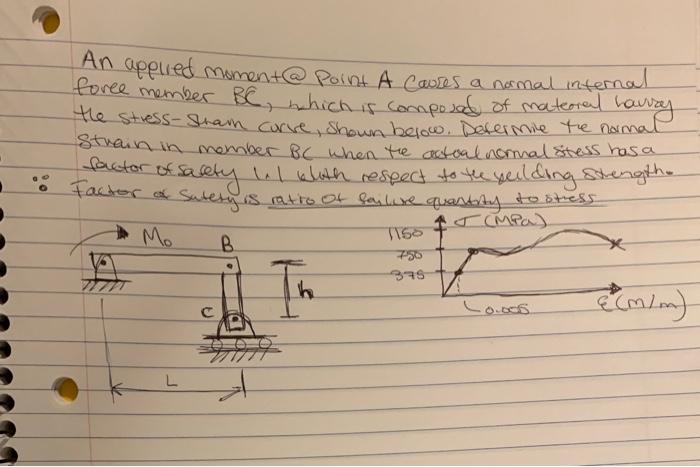 An applied moment @ Point A Causes a normal internal
force member BC, which is composed of material having
the stress-strain curve, shown below. Determine the normal
Strain in member BC when the actual normal stress has a
factor of safety with respect to the yeilding strength.
Factor of Safety is ratio of failure quantity to stress
Mo
B
h
C
L
σ (MPa)
1150
750
375
0.005
ε (m/m)